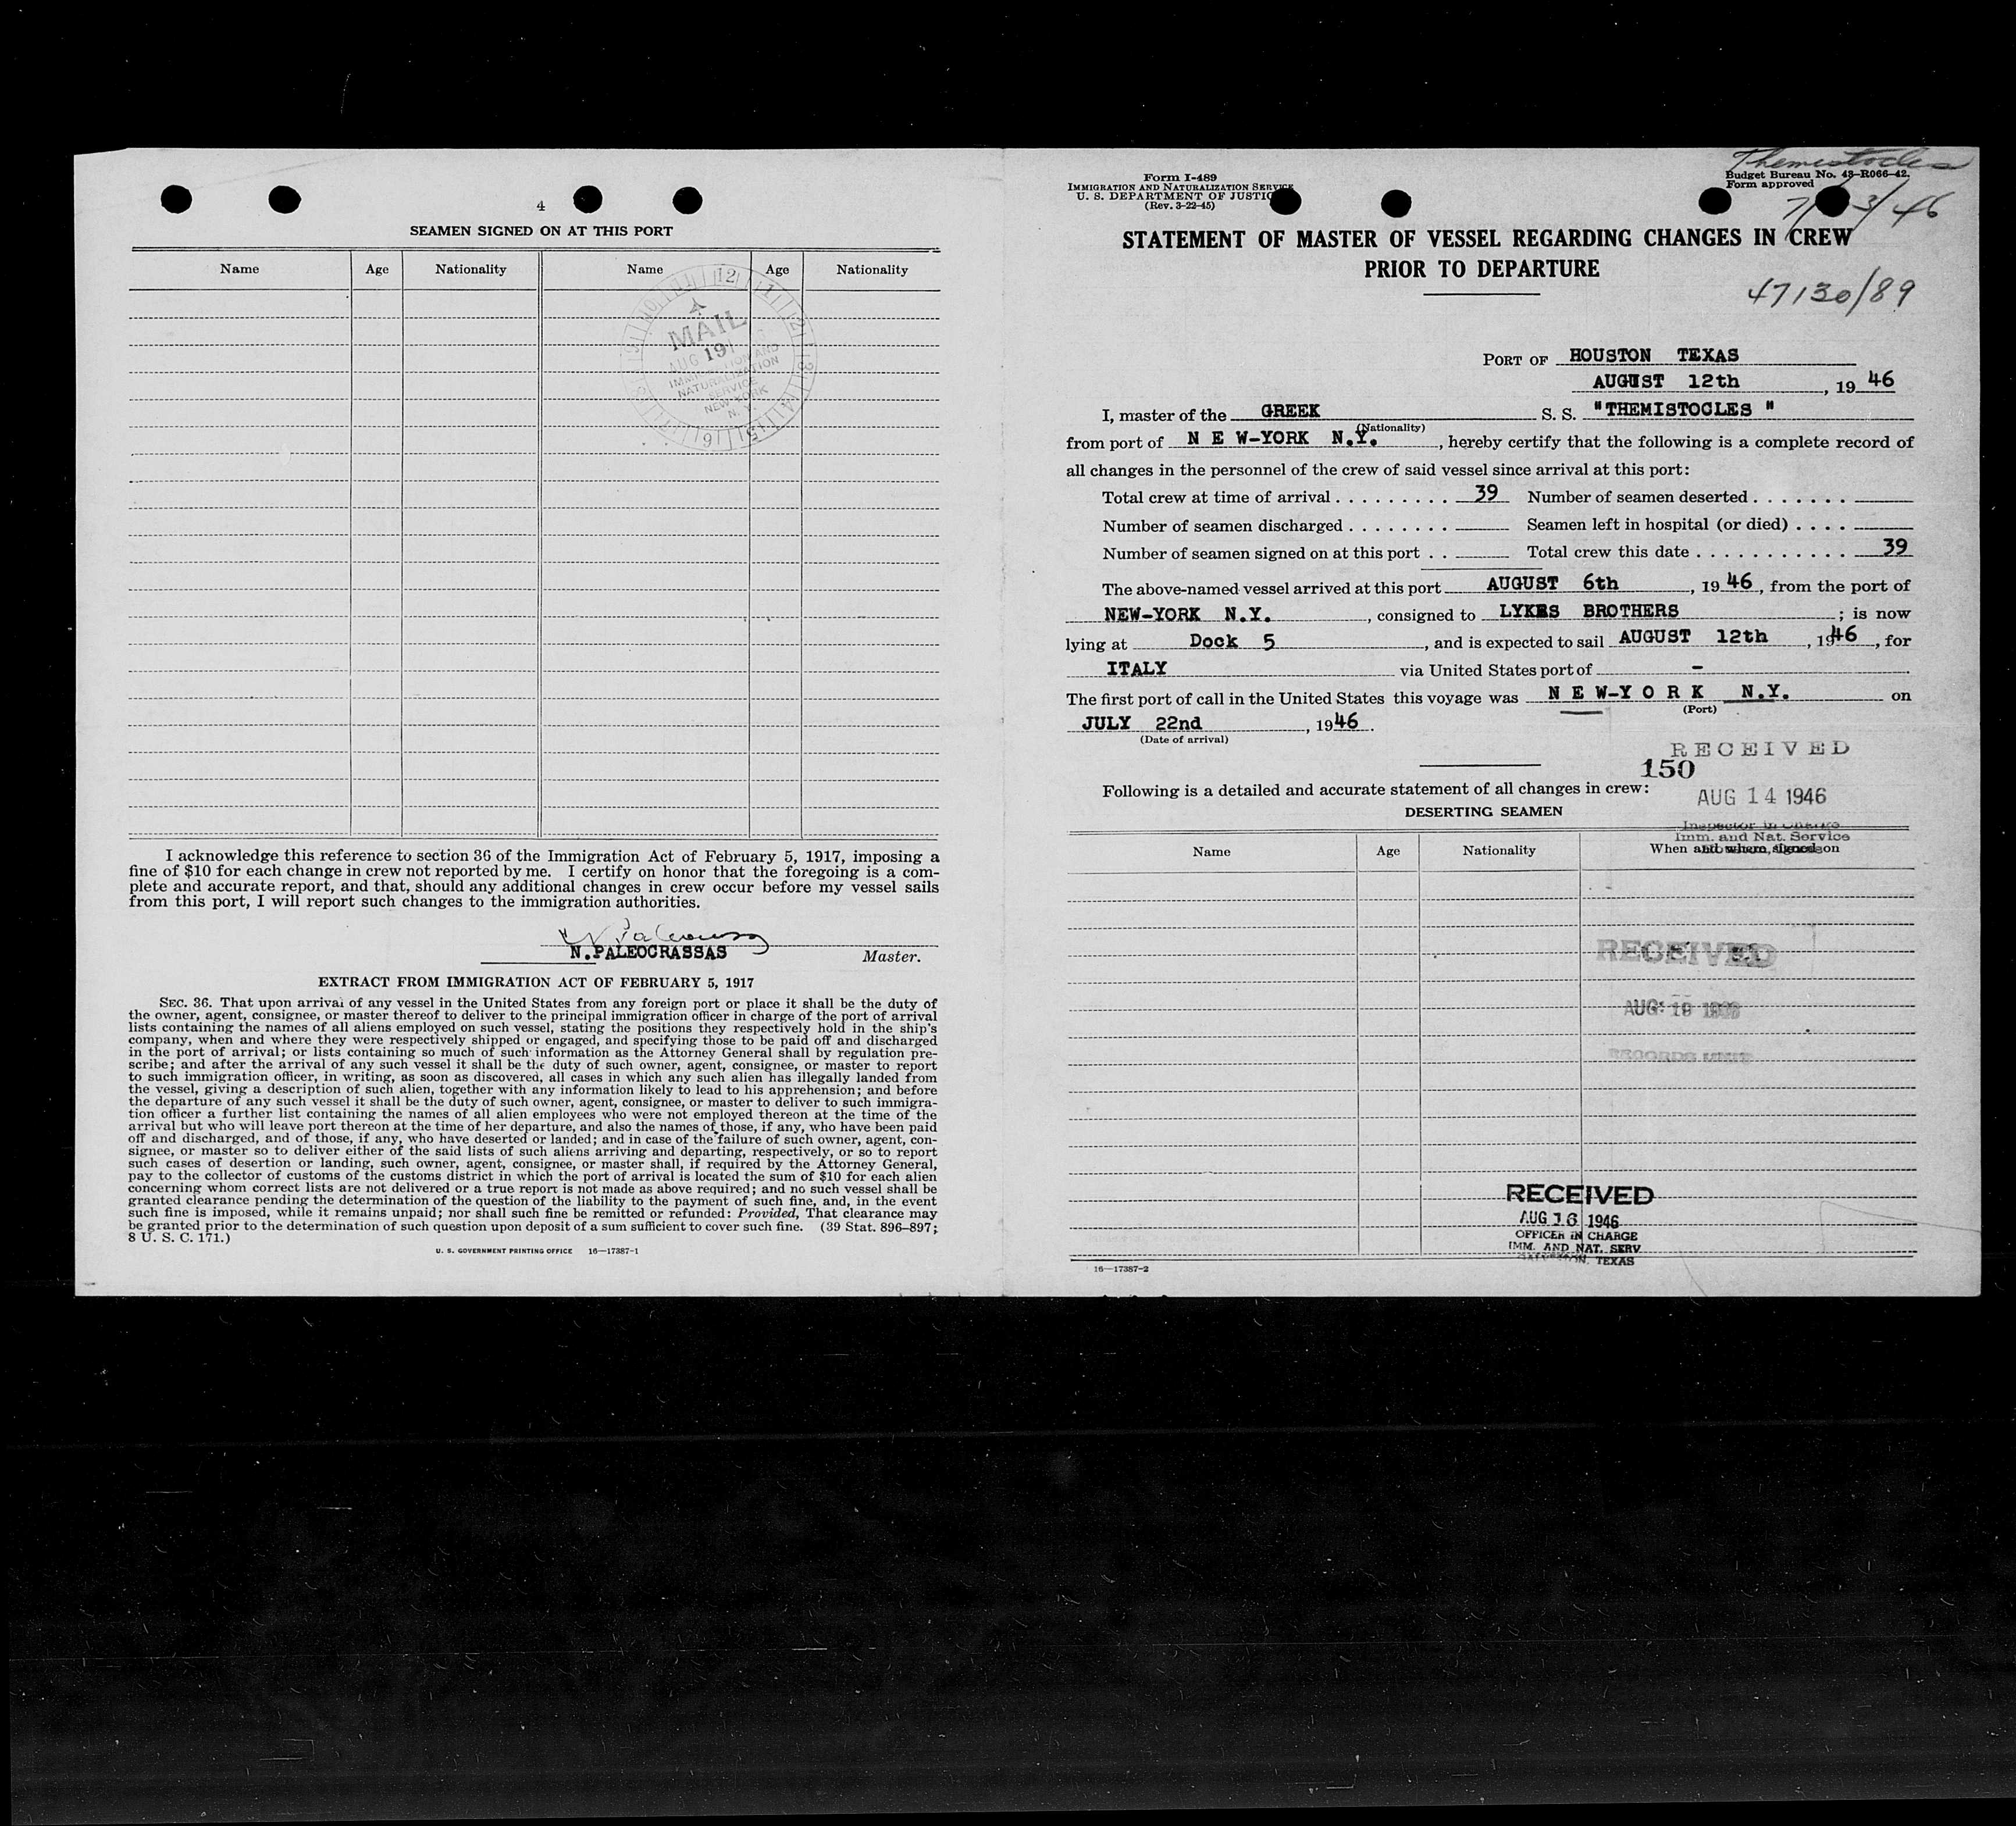 4
SEAMEN SIGNED ON AT THIS PORT
Name Age Nationality Name Age Nationality
12 1 2 3 4 5 6 7
MAIL
AUG 19
IMMIGRATION AND
NATURALIZATION
SERVICE
NEW YORK
N. Y.
I acknowledge this reference to section 36 of the Immigration Act of February 5, 1917, imposing a
fine of $10 for each change in crew not reported by me. I certify on honor that the foregoing is a com-
plete and accurate report, and that, should any additional changes in crew occur before my vessel sails
from this port, I will report such changes to the immigration authorities.
N.PALEOCRASSAS Master.
EXTRACT FROM IMMIGRATION ACT OF FEBRUARY 5, 1917
SEC. 36. That upon arrival of any vessel in the United States from any foreign port or place it shall be the duty of
the owner, agent, consignee, or master thereof to deliver to the principal immigration officer in charge of the port of arrival
lists containing the names of all aliens employed on such vessel, stating the positions they respectively hold in the ship's
company, when and where they were respectively shipped or engaged, and specifying those to be paid off and discharged
in the port of arrival; or lists containing so much of such information as the Attorney General shall by regulation pre-
scribe; and after the arrival of any such vessel it shall be the duty of such owner, agent, consignee, or master to report
to such immigration officer, in writing, as soon as discovered, all cases in which any such alien has illegally landed from
the vessel, giving a description of such alien, together with any information likely to lead to his apprehension; and before
the departure of any such vessel it shall be the duty of such owner, agent, consignee, or master to deliver to such immigra-
tion officer a further list containing the names of all alien employees who were not employed thereon at the time of the
arrival but who will leave port thereon at the time of her departure, and also the names of those, if any, who have been paid
off and discharged, and of those, if any, who have deserted or landed; and in case of the failure of such owner, agent, con-
signee, or master so to deliver either of the said lists of such aliens arriving and departing, respectively, or so to report
such cases of desertion or landing, such owner, agent, consignee, or master shall, if required by the Attorney General,
pay to the collector of customs of the customs district in which the port of arrival is located the sum of $10 for each alien
concerning whom correct lists are not delivered or a true report is not made as above required; and no such vessel shall be
granted clearance pending the determination of the question of the liability to the payment of such fine, and, in the event
such fine is imposed, while it remains unpaid; nor shall such fine be remitted or refunded: Provided, That clearance may
be granted prior to the determination of such question upon deposit of a sum sufficient to cover such fine. (39 Stat. 896–897;
8 U. S. C. 171.)
U. S. GOVERNMENT PRINTING OFFICE 16—17387-1
Themistocles
Form I-489
IMMIGRATION AND NATURALIZATION SERVICE
U. S. DEPARTMENT OF JUSTICE
(Rev. 3-22-45)
Budget Bureau No. 43-R066-42.
Form approved
7/ 3/46
STATEMENT OF MASTER OF VESSEL REGARDING CHANGES IN CREW
PRIOR TO DEPARTURE
47130/89
PORT OF HOUSTON TEXAS
AUGUST 12th, 19 46
I, master of the GREEK S. S. "THEMISTOCLES "
(Nationality)
from port of N E W-YORK N.Y., hereby certify that the following is a complete record of
all changes in the personnel of the crew of said vessel since arrival at this port:
Total crew at time of arrival . . . . . . . . . 39 Number of seamen deserted . . . . . . .
Number of seamen discharged . . . . . . . . Seamen left in hospital (or died) . . . .
Number of seamen signed on at this port . . Total crew this date . . . . . . . . . . . 39
The above-named vessel arrived at this port AUGUST 6th, 19 46, from the port of
NEW-YORK N.Y., consigned to LYKES BROTHERS; is now
lying at Dock 5, and is expected to sail AUGUST 12th, 1946, for
ITALY via United States port of -
The first port of call in the United States this voyage was N E W-Y O R K N.Y. on
(Port)
JULY 22nd, 1946.
(Date of arrival)
RECEIVED
150
Following is a detailed and accurate statement of all changes in crew:
AUG 14 1946
DESERTING SEAMEN
Inspector in Charge
Imm. and Nat. Service
Name Age Nationality When and where signed on
RECEIVED
AUG 19
RECORDS UNIT
RECEIVED
AUG 16 1946
OFFICER IN CHARGE
IMM. AND NAT. SERV
TEXAS
16—17387-2